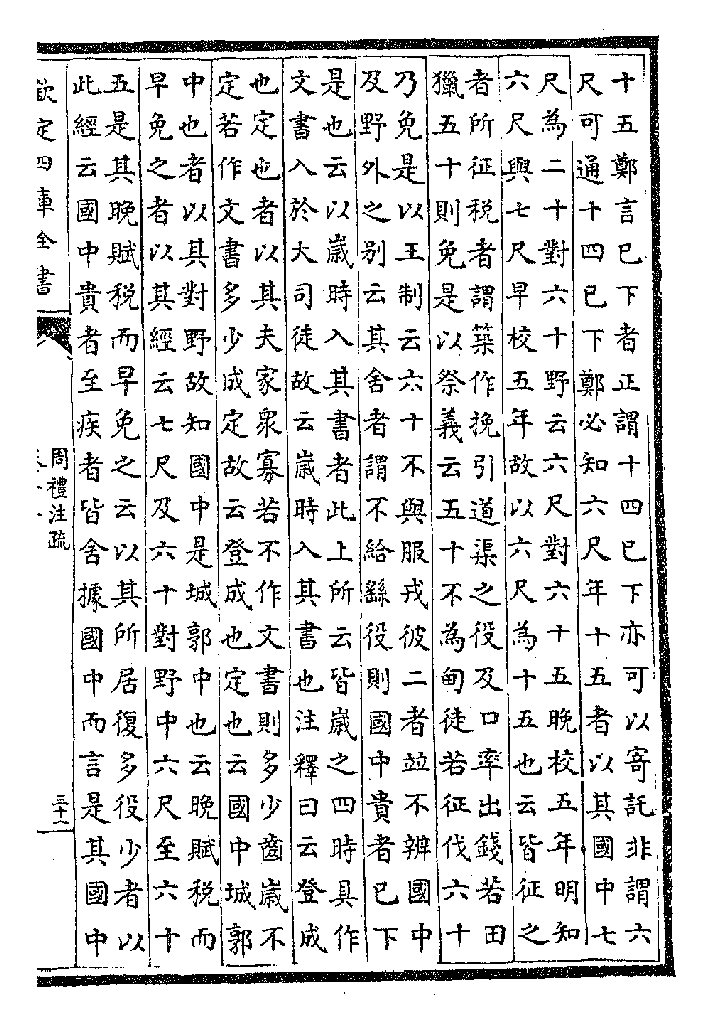 十五鄭言已下者正謂十四已下亦可以寄託非謂六
尺可通十四已下鄭必知六尺年十五者以其國中七
尺為二十對六十野云六尺對六十五晚校五年明知
六尺與七尺早校五年故以六尺為十五也云皆征之
者所征税者謂築作挽引道渠之役及口率出錢若田
獵五十則免是以祭義云五十不為甸徒若征伐六十
乃免是以王制云六十不與服戎彼二者竝不辨國中
及野外之别云其舍者謂不給繇役則國中貴者已下
是也云以歲時入其書者此上所云皆歲之四時具作
文書入於大司徒故云歲時入其書也注釋曰云登成
也定也者以其夫家衆寡若不作文書則多少齒歲不
定若作文書多少成定故云登成也定也云國中城郭
中也者以其對野故知國中是城郭中也云晚賦税而
早免之者以其經云七尺及六十對野中六尺至六十
五是其晚賦税而早免之云以其所居復多役少者以
此經云國中貴者至疾者皆舍據國中而言是其國中
欽定四庫全書
周禮注疏